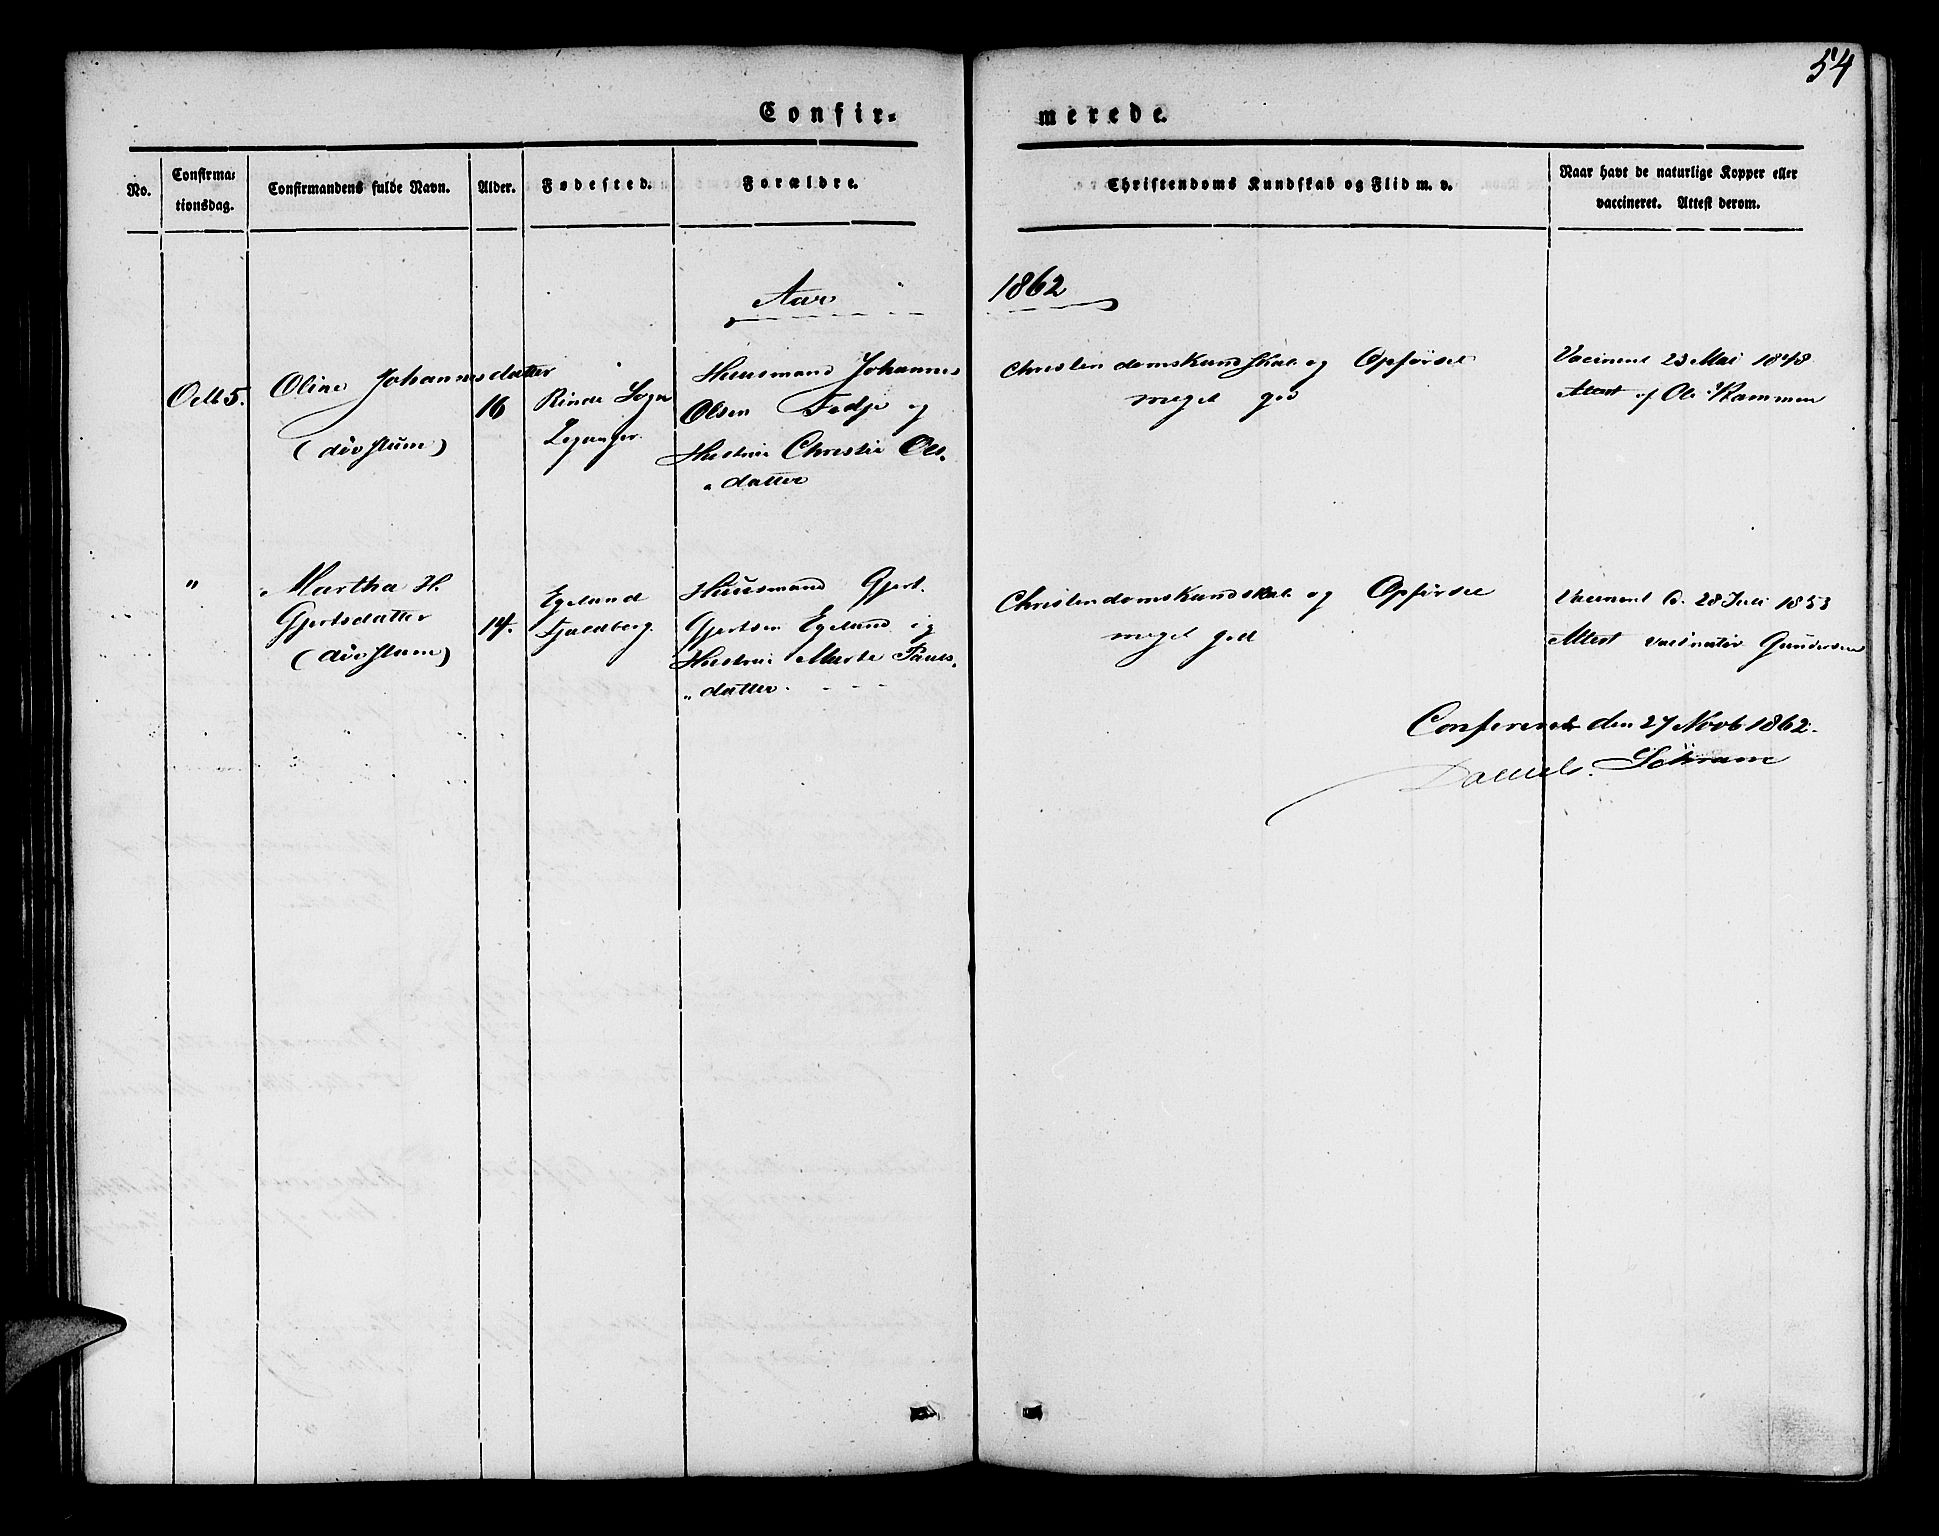 54
Confir-
merede.
No.
Confirma-
tionsdag.
Confirmandens fulde Navn.
Alder.
Fødested.
Forældre.
Christendoms Kundskab og Flid m. v.
Naar havt de naturlige Kopper eller
vaccineret. Attest derom.
Aar
1862
Octb 5.
Oline Johannesdatter
(døvstum)
16
Rinde Sogn
Leganger
Huusmand Johannes
Olsen Fedje og
Hustrue Christie Ols-
datter
Christendomskundskab og Opførsel
meget god
Vaccineret 23 Mai 1848
Attest af Ole Rammen
"
Martha H.
Gjertsdatter
(døvstum)
14.
Egeland
Fjeldberg
Huusmand Gjert
Gjertsen Egeland og
Hustrue Marte Pauls-
datter
Christendomskundskab og Opførsel
meget god
Vaccineret d. 28 Juli 1853
Attest vaccinatør Gundersen
Confereret den 27 Novb 1862.